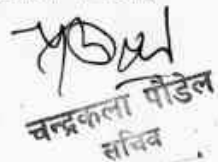 चन्द्रकला पौडेल
सचिव